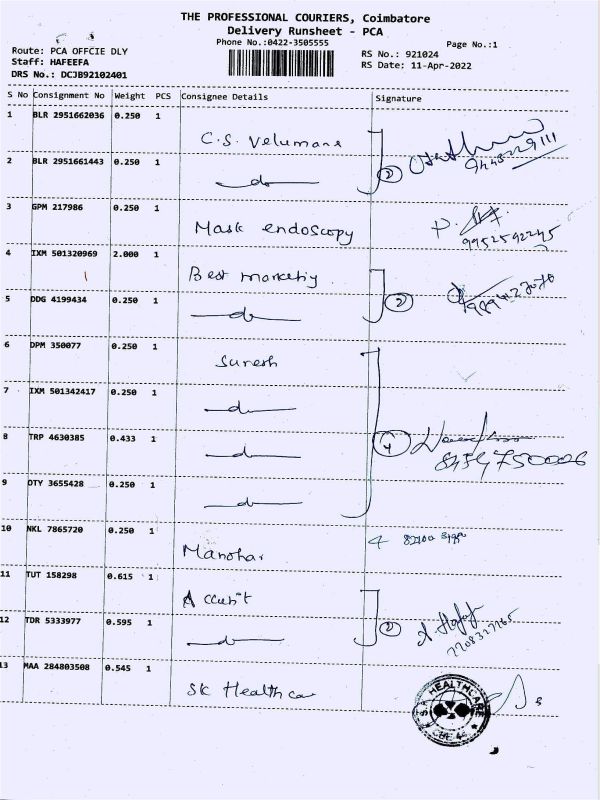 THE PROFESSIONAL COURIERS, Coimbatore
Delivery Runsheet - PCA
Phone No.:0422-3505555
Page No.:1
Route: PCA OFFCIE DLY
RS No.: 921024
Staff: HAFEEFA
RS Date: 11-Apr-2022
DRS No.: DCJB92102401
S No Consignment No Weight PCS Consignee Details Signature
1 BLR 2951662036 0.250 1 C.S. Velumani
2 BLR 2951661443 0.250 1 do 2
3 GPM 217986 0.250 1 Mask endoscopy
9952592245
4 IXM 501320969 2.000 1 Best marketing
5 DDG 4199434 0.250 1 do 2
6 DPM 350077 0.250 1 Suresh
7 IXM 501342417 0.250 1 do
8 TRP 4630385 0.433 1 do 4
8754750006
9 OTY 3655428 0.250 1 do
10 NKL 7865720 0.250 1 Manohar
11 TUT 158298 0.615 1
12 TDR 5333977 0.595 1 do 2
7708327765
13 MAA 284803508 0.545 1 SK Health car
HEALTHCARE